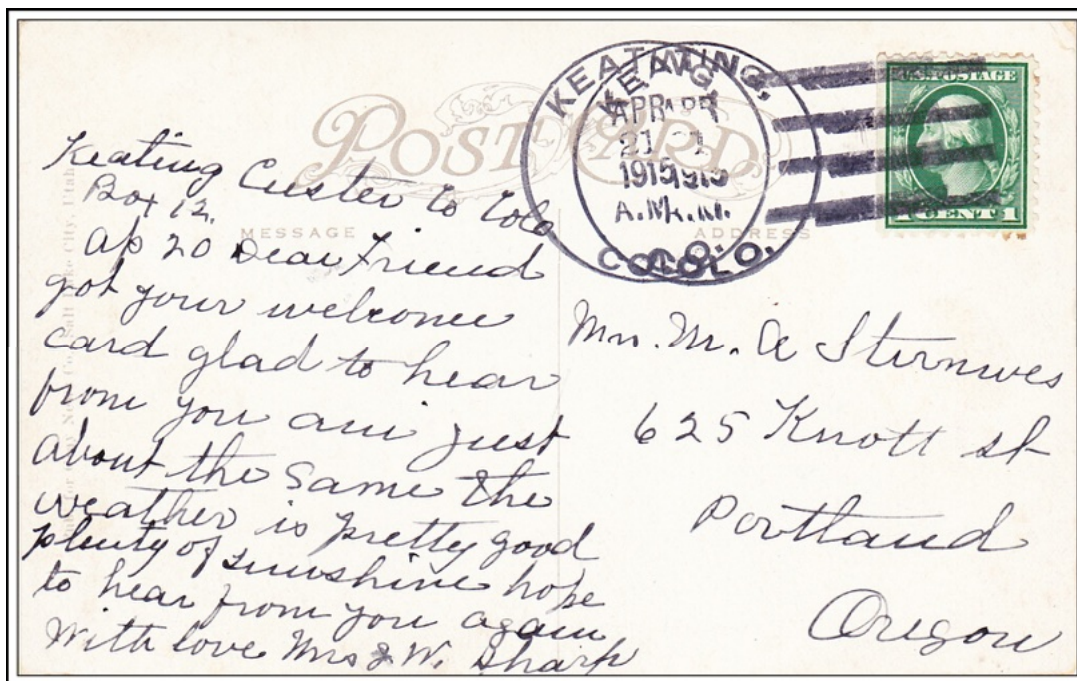 POST CARD
MESSAGE
ADDRESS
KEATING,
APR
21
1915
A.M.
COLO.
U.S. POSTAGE
1 CENT 1
Keating Custer Co Colo
Box 12.
Ap 20 Dear Friend
got your welcome
card glad to hear
from you am just
about the same the
weather is pretty good
plenty of sunshine hope
to hear from you again
With love Mrs J W. Sharp
Mrs. M. A
625 Knott st
Portland
Oregon
Salt Lake City, Utah